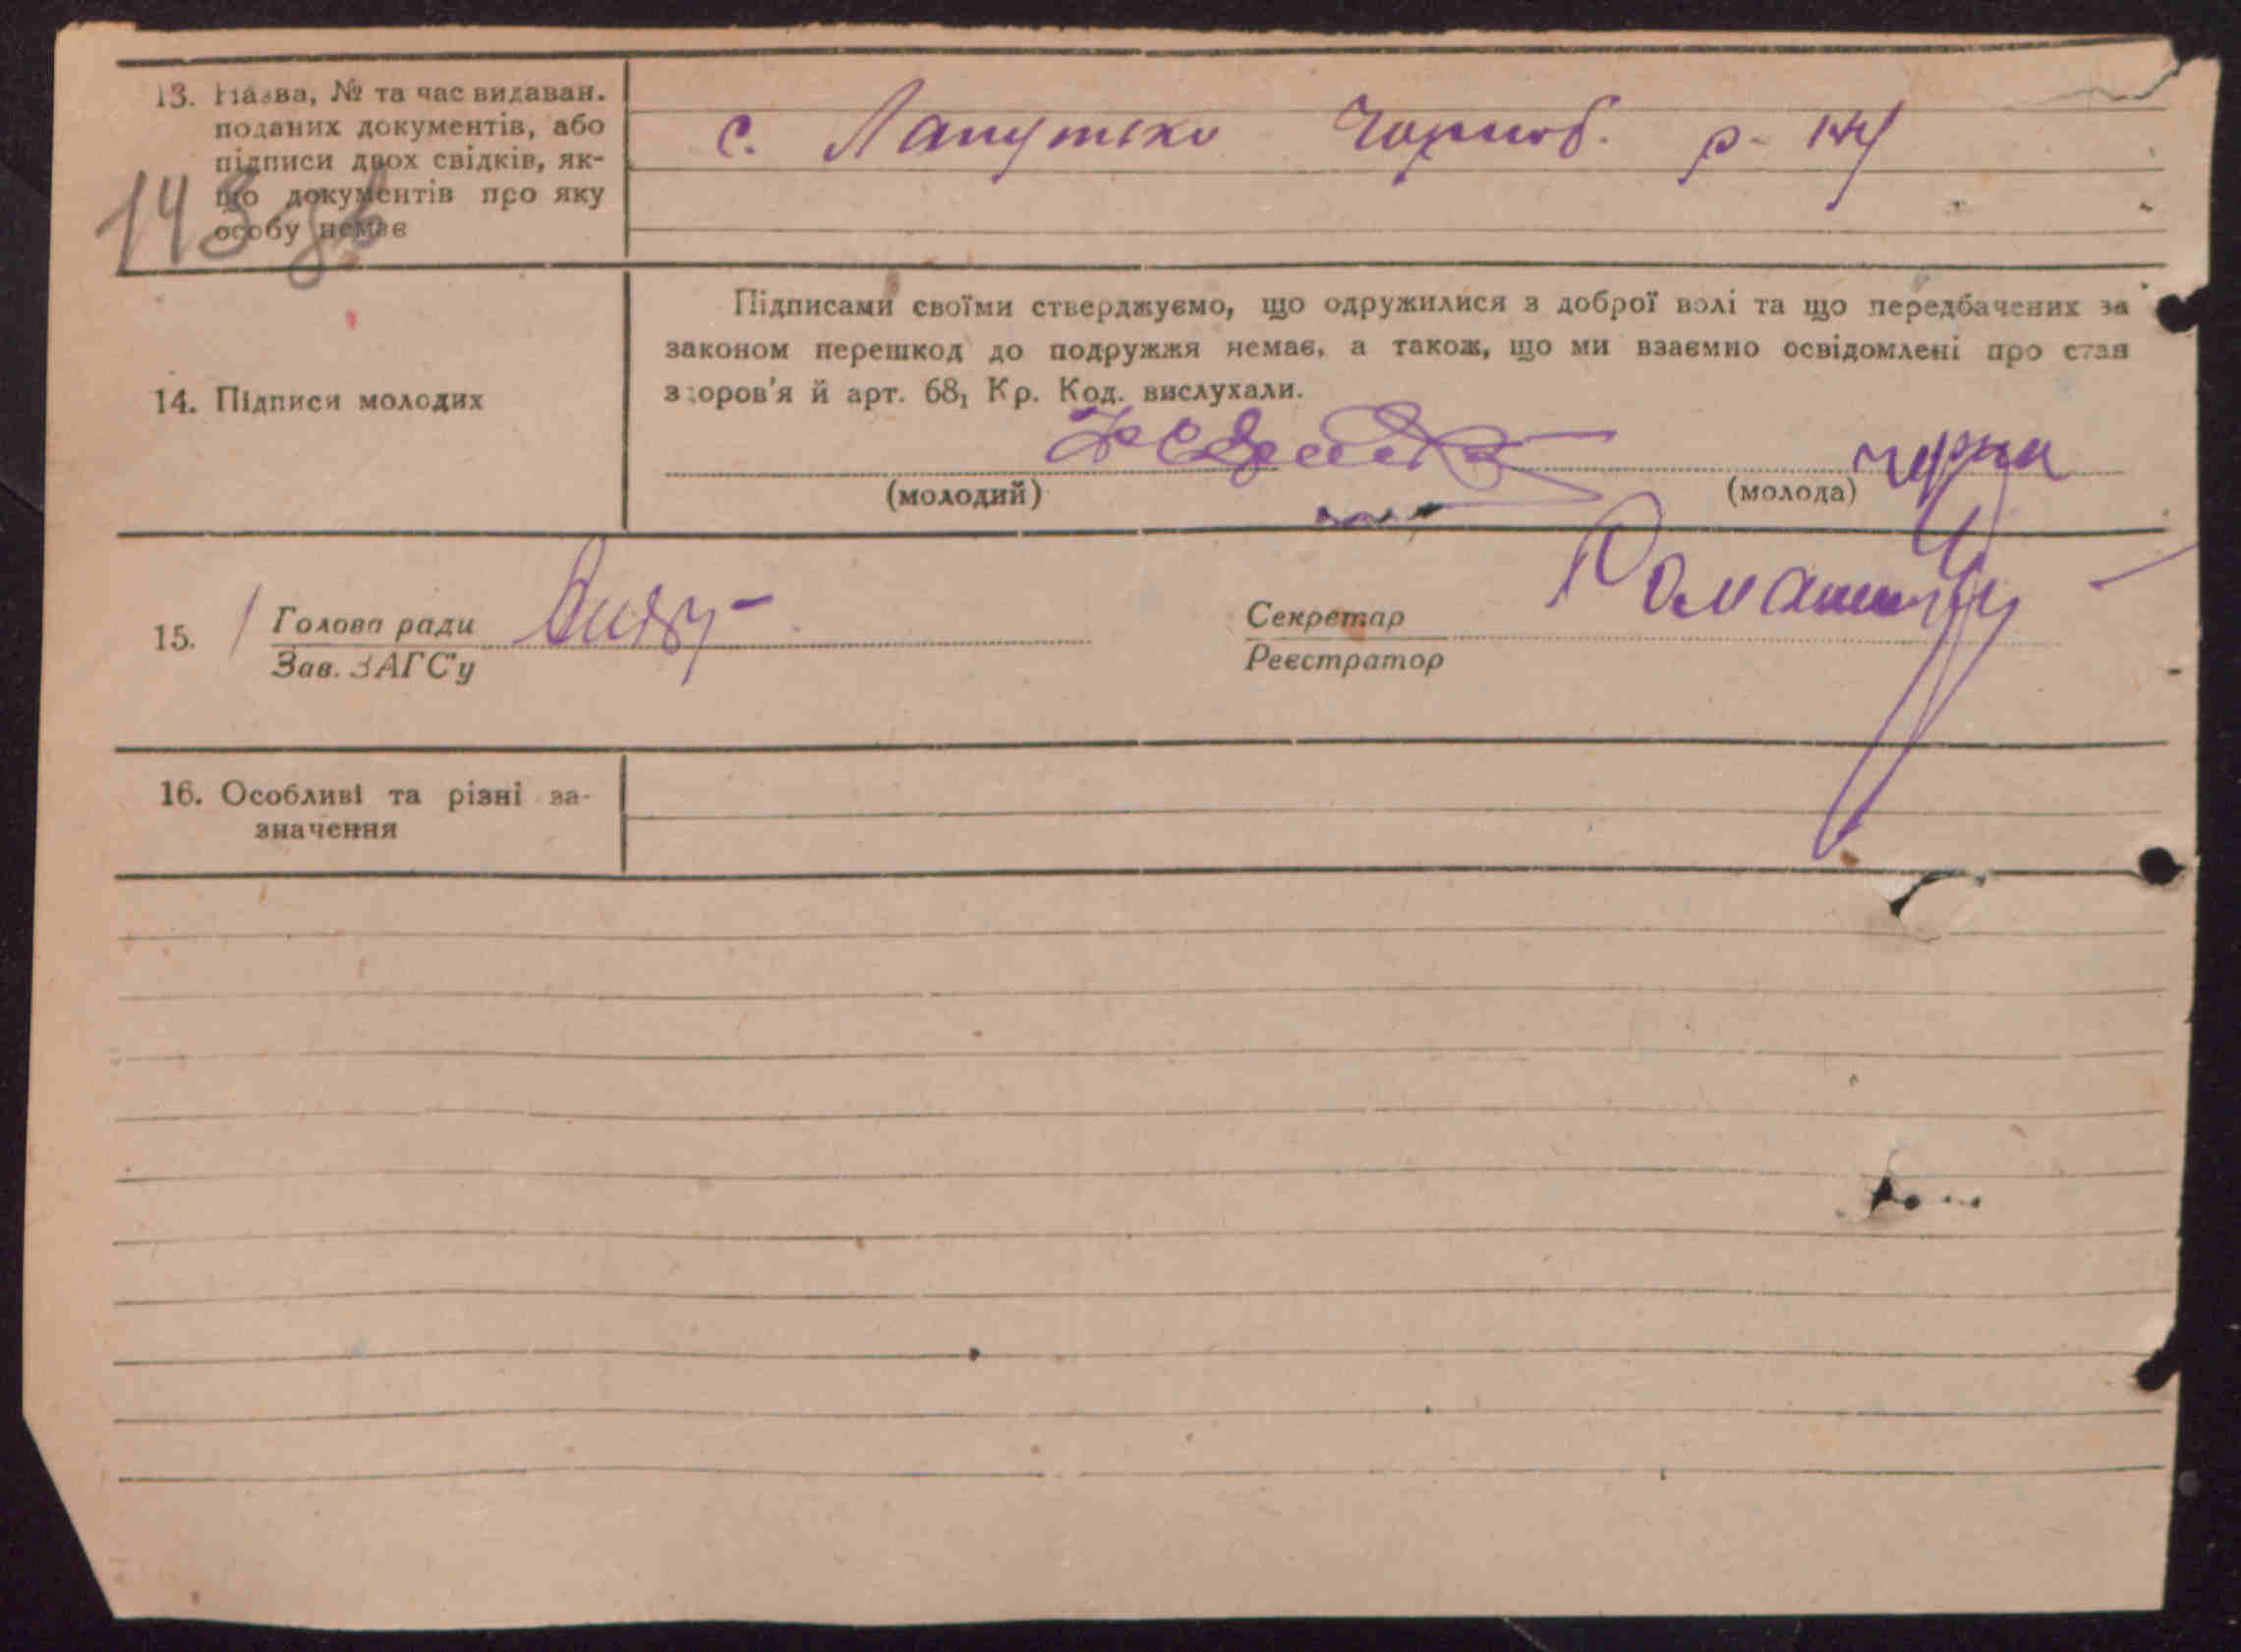 13. Назва, № та час видаван.
поданих документів, або
підписи двох свідків, як-
що документів про яку
особу немає
с. Лапутьки Чорноб. р-ну
14. Підписи молодих
Підписами своїми стверджуємо, що одружилися з доброї волі та що передбачених за
законом перешкод до подружжя немає, а також, що ми взаємно освідомлені про стан
здоров'я й арт. 68, Кр. Код. вислухали.
(молодий)
(молода)
15. Голова ради
Зав. ЗАГС'у
Секретар
Реєстратор
16. Особливі та різні за-
значення